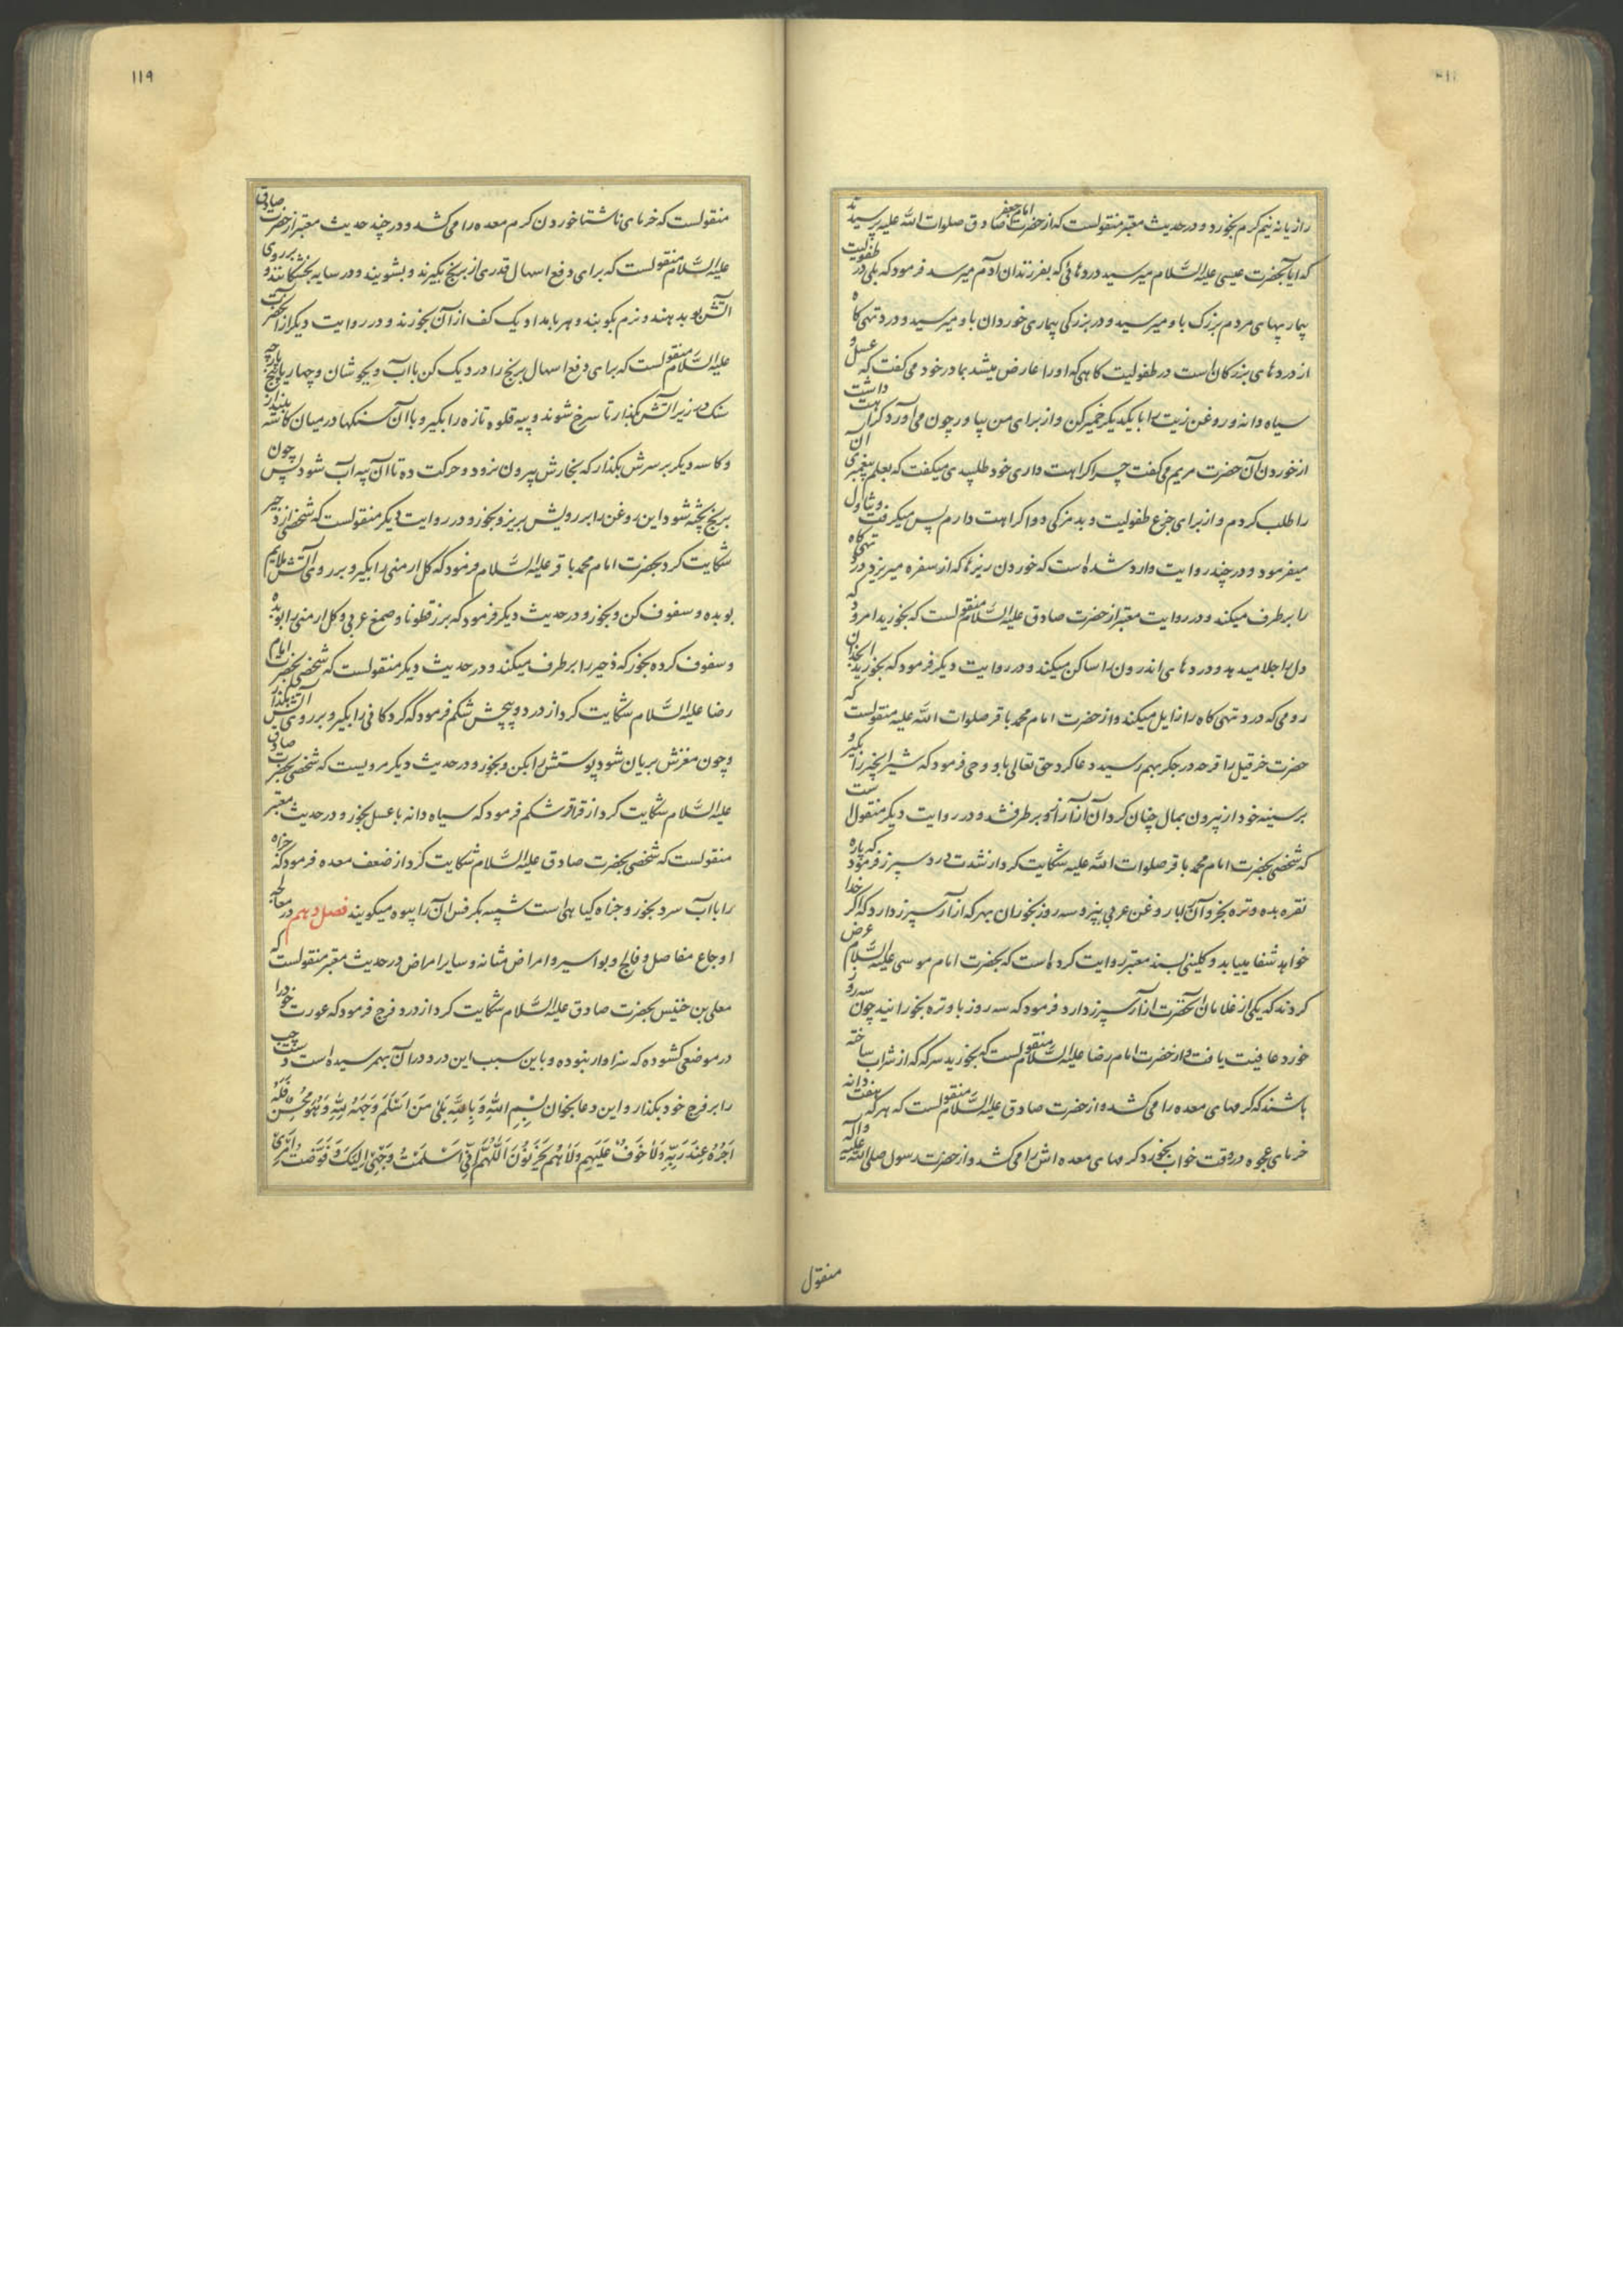 رازیانه نیم گرم بخورد و در حدیث معتبر منقولست که از حضرت امام جعفر صادق صلوات الله علیه پرسیدند
که ایا بحضرت عیسی علیه السَّلام میرسید دردهائی که بفرزندان آدم میرسد فرمود که بلی در طفولیت
بیماریهای مردم بزرک باو میرسید و در بزرکی بیماری خوردان باو میرسید و درد تهی کاه
از دردهای بزرکان است در طفولیت کاهی که او را عارض میشد بمادر خود می کفت که عسل و
سیاه دانه و روغن زیت را با یکدیکر خمیر کن و از برای من بیاور چون می آورد کراهت داشت
از خوردن آن حضرت مریم می کفت چرا کراهت داری خود طلبیدی میکفت که بعلم پیغمبری ان
را طلب کردم و از برای جزع طفولیت و بدمزکی دوا کراهت دارم پس میکرفت و تناول
میفرمود و در چند روایت وارد شده است که خوردن ریزها که از سفره میریزد درد تهی کاه
را برطرف میکند و در روایت معتبر از حضرت صادق علیه السَّلام منقولست که بخورید امرود که
دل را جلا میدهد و دردهای اندرون را ساکن میکند و در روایت دیکر فرمود که بخورید انجدان
رومی که درد تهی کاه را زایل میکند و از حضرت امام محمد باقر صلوات الله علیه منقولست که
حضرت خرقیل را قرحه در جکر بهم رسید دعا کرد حق تعالی باو وحی فرمود که شیر انجیر را بکیر و
بر سینه خود از بیرون بمال چنان کرد آن آزار از و برطرف شد و در روایت دیکر منقول است
که شخصی بحضرت امام محمد باقر صلوات الله علیه شکایت کرد از شدت درد سپرز فرمود که پاره
نقره بده و تره بخر و آن را با روغن عربی بپز و سه روز بخوران بهر که ازار سپرز دارد که اکر خدا
خواهد شفا میابد و کلینی بسند معتبر روایت کرده است که بحضرت امام موسی علیه السَّلام عرض
کردند که یکی از غلامان آنحضرت ازار سپرز دارد فرمود که سه روز باو تره بخورانید چون سه روز
خورد عافیت یافت و از حضرت امام رضا علیه السَّلام منقولست که بخورید سرکه که از شراب ساخته
باشند که کرمهای معده را می کشد و از حضرت صادق علیه السَّلام منقولست که هر که هفت دانه
خرمای عجوه در وقت خواب بخورد کرمهای معده اش را می کشد و از حضرت رسول صلی الله علیه واله
منقول
١١٩
منقولست که خرمای ناشتا خوردن کرم معده را می کشد و در چند حدیث معتبر از حضرت صادق
علیه السَّلام منقولست که برای دفع اسهال قدری از برنج بکیرند و بشویند و در سایه بخشکانند و بر روی
اتش بو بدهند و نرم بکوبند و هر بامداد یک کف از آن بخورند و در روایت دیکر از انحضرت
علیه السَّلام منقولست که برای دفع اسهال برنج را در دیک کن با آب و بجوشان و چهار یا پنج پارچه
سنک در زیر اتش بکذار تا سرخ شوند و پیه قلوه تازه را بکیر و با آن سنکها در میان کاسه بینداز
و کاسه دیکر بر سرش بکذار که بخارش بیرون نرود و حرکت ده تا آن پیه آب شود پس چون
برنج پخته شود این روغن را بر رویش بریز و بخور و در روایت دیکر منقولست که شخصی از زحیر
شکایت کرد بحضرت امام محمد باقر علیه السَّلام فرمود که کل ارمنی را بکیر و بر روی آتش ملایم
بو بده و سفوف کن و بخور و در حدیث دیکر فرمود که بزر قطونا و صمغ عربی و کل ارمنی را بو بده
و سفوف کرده بخور که ذحیر را برطرف میکند و در حدیث دیکر منقولست که شخصی بحضرت امام
رضا علیه السَّلام شکایت کرد از درد و پیچش شکم فرمود که کردکانی را بکیر و بر روی آتش بکذار
و چون مغزش بریان شود پوستش را بکن و بخور و در حدیث دیکر مرویست که شخصی بحضرت صادق
علیه السَّلام شکایت کرد از قراقر شکم فرمود که سیاه دانه با عسل بخور و در حدیث معتبر
منقولست که شخصی بحضرت صادق علیه السَّلام شکایت کرد از ضعف معده فرمود که حزاه
را با آب سرد بخور و حزاه کیاهی است شبیه بکرفس آن را پیوه میکویند فصل دهم در معالجه
اوجاع مفاصل و فالج و بواسیر و امراض مثانه و سایر امراض در حدیث معتبر منقولست که
معلی بن خنیس بحضرت صادق علیه السَّلام شکایت کرد از درد فرج فرمود که عورت خود را
در موضعی کشوده که سزاوار نبوده و باین سبب این درد در آن بهم رسیده است دست چپ
را بر فرج خود بکذار و این دعا بخوان بِسْمِ اللهِ وَ بِاللهِ بَلٰی مَنْ اَسْلَمَ وَجْهَهُ لِلهِ وَهُوَ مُحْسِنٌ فَلَهُ
اَجْرُهُ عِنْدَ رَبِّهِ وَلَا خَوْفٌ عَلَیْهِمْ وَلَا هُمْ یَحْزَنُوْنَ اَللّٰهُمَّ اِنّی اَسْلَمْتُ وَجْهِیَ اِلَیْکَ وَ فَوَّضْتُ اَمْرِیْ